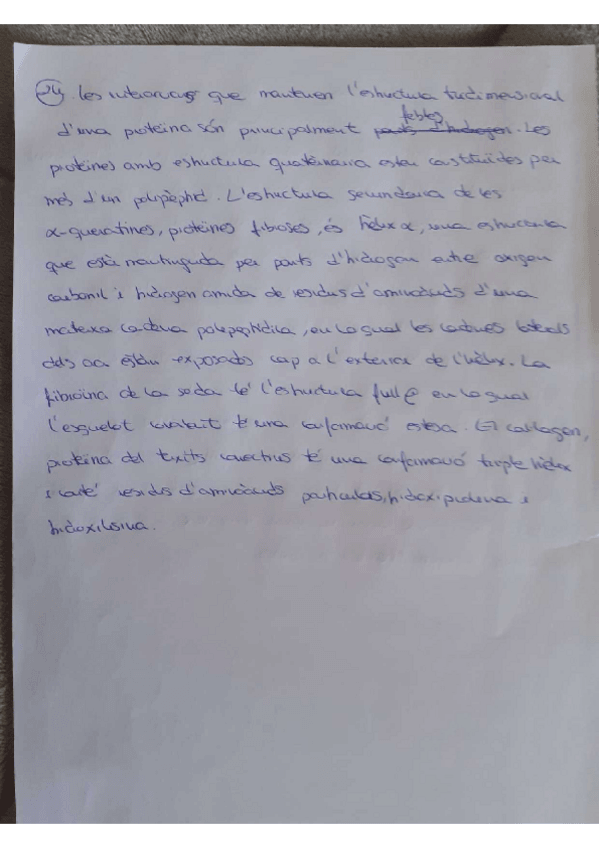 24 Les interaccions que mantenen l'estructura tridimensional
d'una proteïna són principalment febles ponts d'hidrogen. Les
proteïnes amb estructura quaternaria estan constituïdes per
més d'un polipèptid. L'estructura secundaria de les
α-queratines, proteïnes fibroses, és hèlix α, una estructura
que està mantinguda per ponts d'hidrogen entre oxigen
carbonil i hidrogen amida de residus d'aminoàcids d'una
mateixa cadena polipeptídica, en la qual les cadenes laterals
dels aa estan exposades cap a l'exterior de l'hèlix. La
fibroïna de la seda té l'estructura full β en la qual
l'esquelet covalent té una conformació estesa. El col·lagen,
proteïna del teixits connectius té una conformació triple hèlix
i conté residus d'aminoàcids particulars, hidroxiprolina i
hidroxilisina.